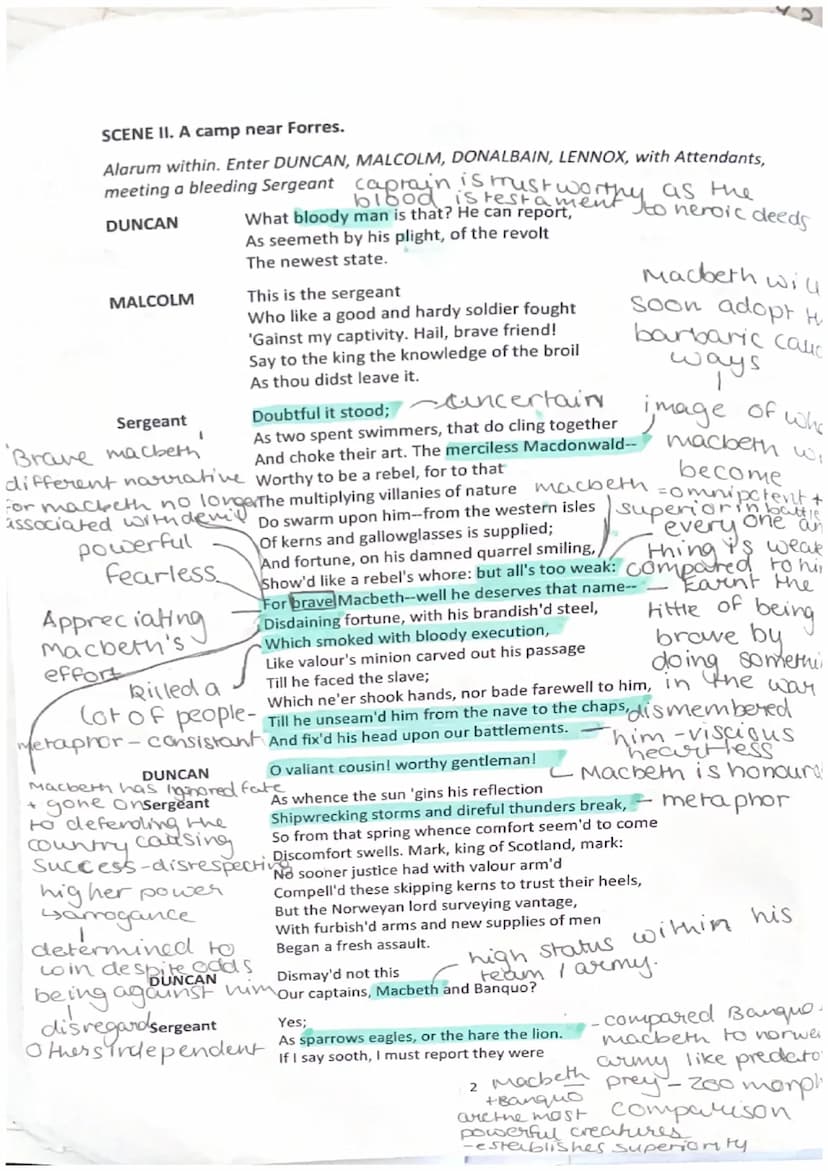 SCENE II. A camp near Forres.
Alarum within. Enter DUNCAN, MALCOLM, DONALBAIN, LENNOX, with Attendants,
meeting a bleeding Sergeant
captain is trustworthy as the
blood is testament to heroic deeds
DUNCAN
What bloody man is that? He can report,
As seemeth by his plight, of the revolt
The newest state.
MALCOLM
This is the sergeant
Who like a good and hardy soldier fought
'Gainst my captivity. Hail, brave friend!
Say to the king the knowledge of the broil
As thou didst leave it.
Macbeth will
soon adopt
barbaric
ways
image of
macbeth
become
Sergeant
Doubtful it stood;
uncertain
As two spent swimmers, that do cling together
And choke their art. The merciless Macdonwald--
Worthy to be a rebel, for to that
The multiplying villanies of nature
Do swarm upon him--from the western isles
Of kerns and gallowglasses is supplied;
And fortune, on his damned quarrel smiling,
Show'd like a rebel's whore: but all's too weak:
For brave Macbeth--well he deserves that name--
Disdaining fortune, with his brandish'd steel,
Which smoked with bloody execution,
Like valour's minion carved out his passage
Till he faced the slave;
Which ne'er shook hands, nor bade farewell to him,
Till he unseam'd him from the nave to the chaps,
And fix'd his head upon our battlements.
'Brave macbeth'
different narrative
for macbeth no longer
associated with
powerful
fearless
Appreciating
macbeth's
effort
killed a
lot of people-
metaphor - consistant
macbeth
=omnipotent +
superior in battle
every one
thing is weak
compared to
Earnt the
title of being
brave by
doing
in the war
dismembered
him - viscious
heartless
DUNCAN
O valiant cousin! worthy gentleman!
Macbeth is
Sergeant
As whence the sun 'gins his reflection
Shipwrecking storms and direful thunders break,
metaphor
So from that spring whence comfort seem'd to come
Discomfort swells. Mark, king of Scotland, mark:
No sooner justice had with valour arm'd
Compell'd these skipping kerns to trust their heels,
But the Norweyan lord surveying vantage,
With furbish'd arms and new supplies of men
Began a fresh assault.
Macbeth has ignored fate
+ gone on
to defending the
country causing
success - disrespecting
higher power
↳arrogance
determined to
win despite odds
being against him
disregard
others independent
DUNCAN
Dismay'd not this
Our captains, Macbeth and Banquo?
high status within his
team / army.
Sergeant
Yes;
As sparrows eagles, or the hare the lion.
If I say sooth, I must report they were
- compared Banquo
macbeth to
army like
prey -
comparison
2
Macbeth
+Banquo
are the most
powerful creatures
- establishes superiority